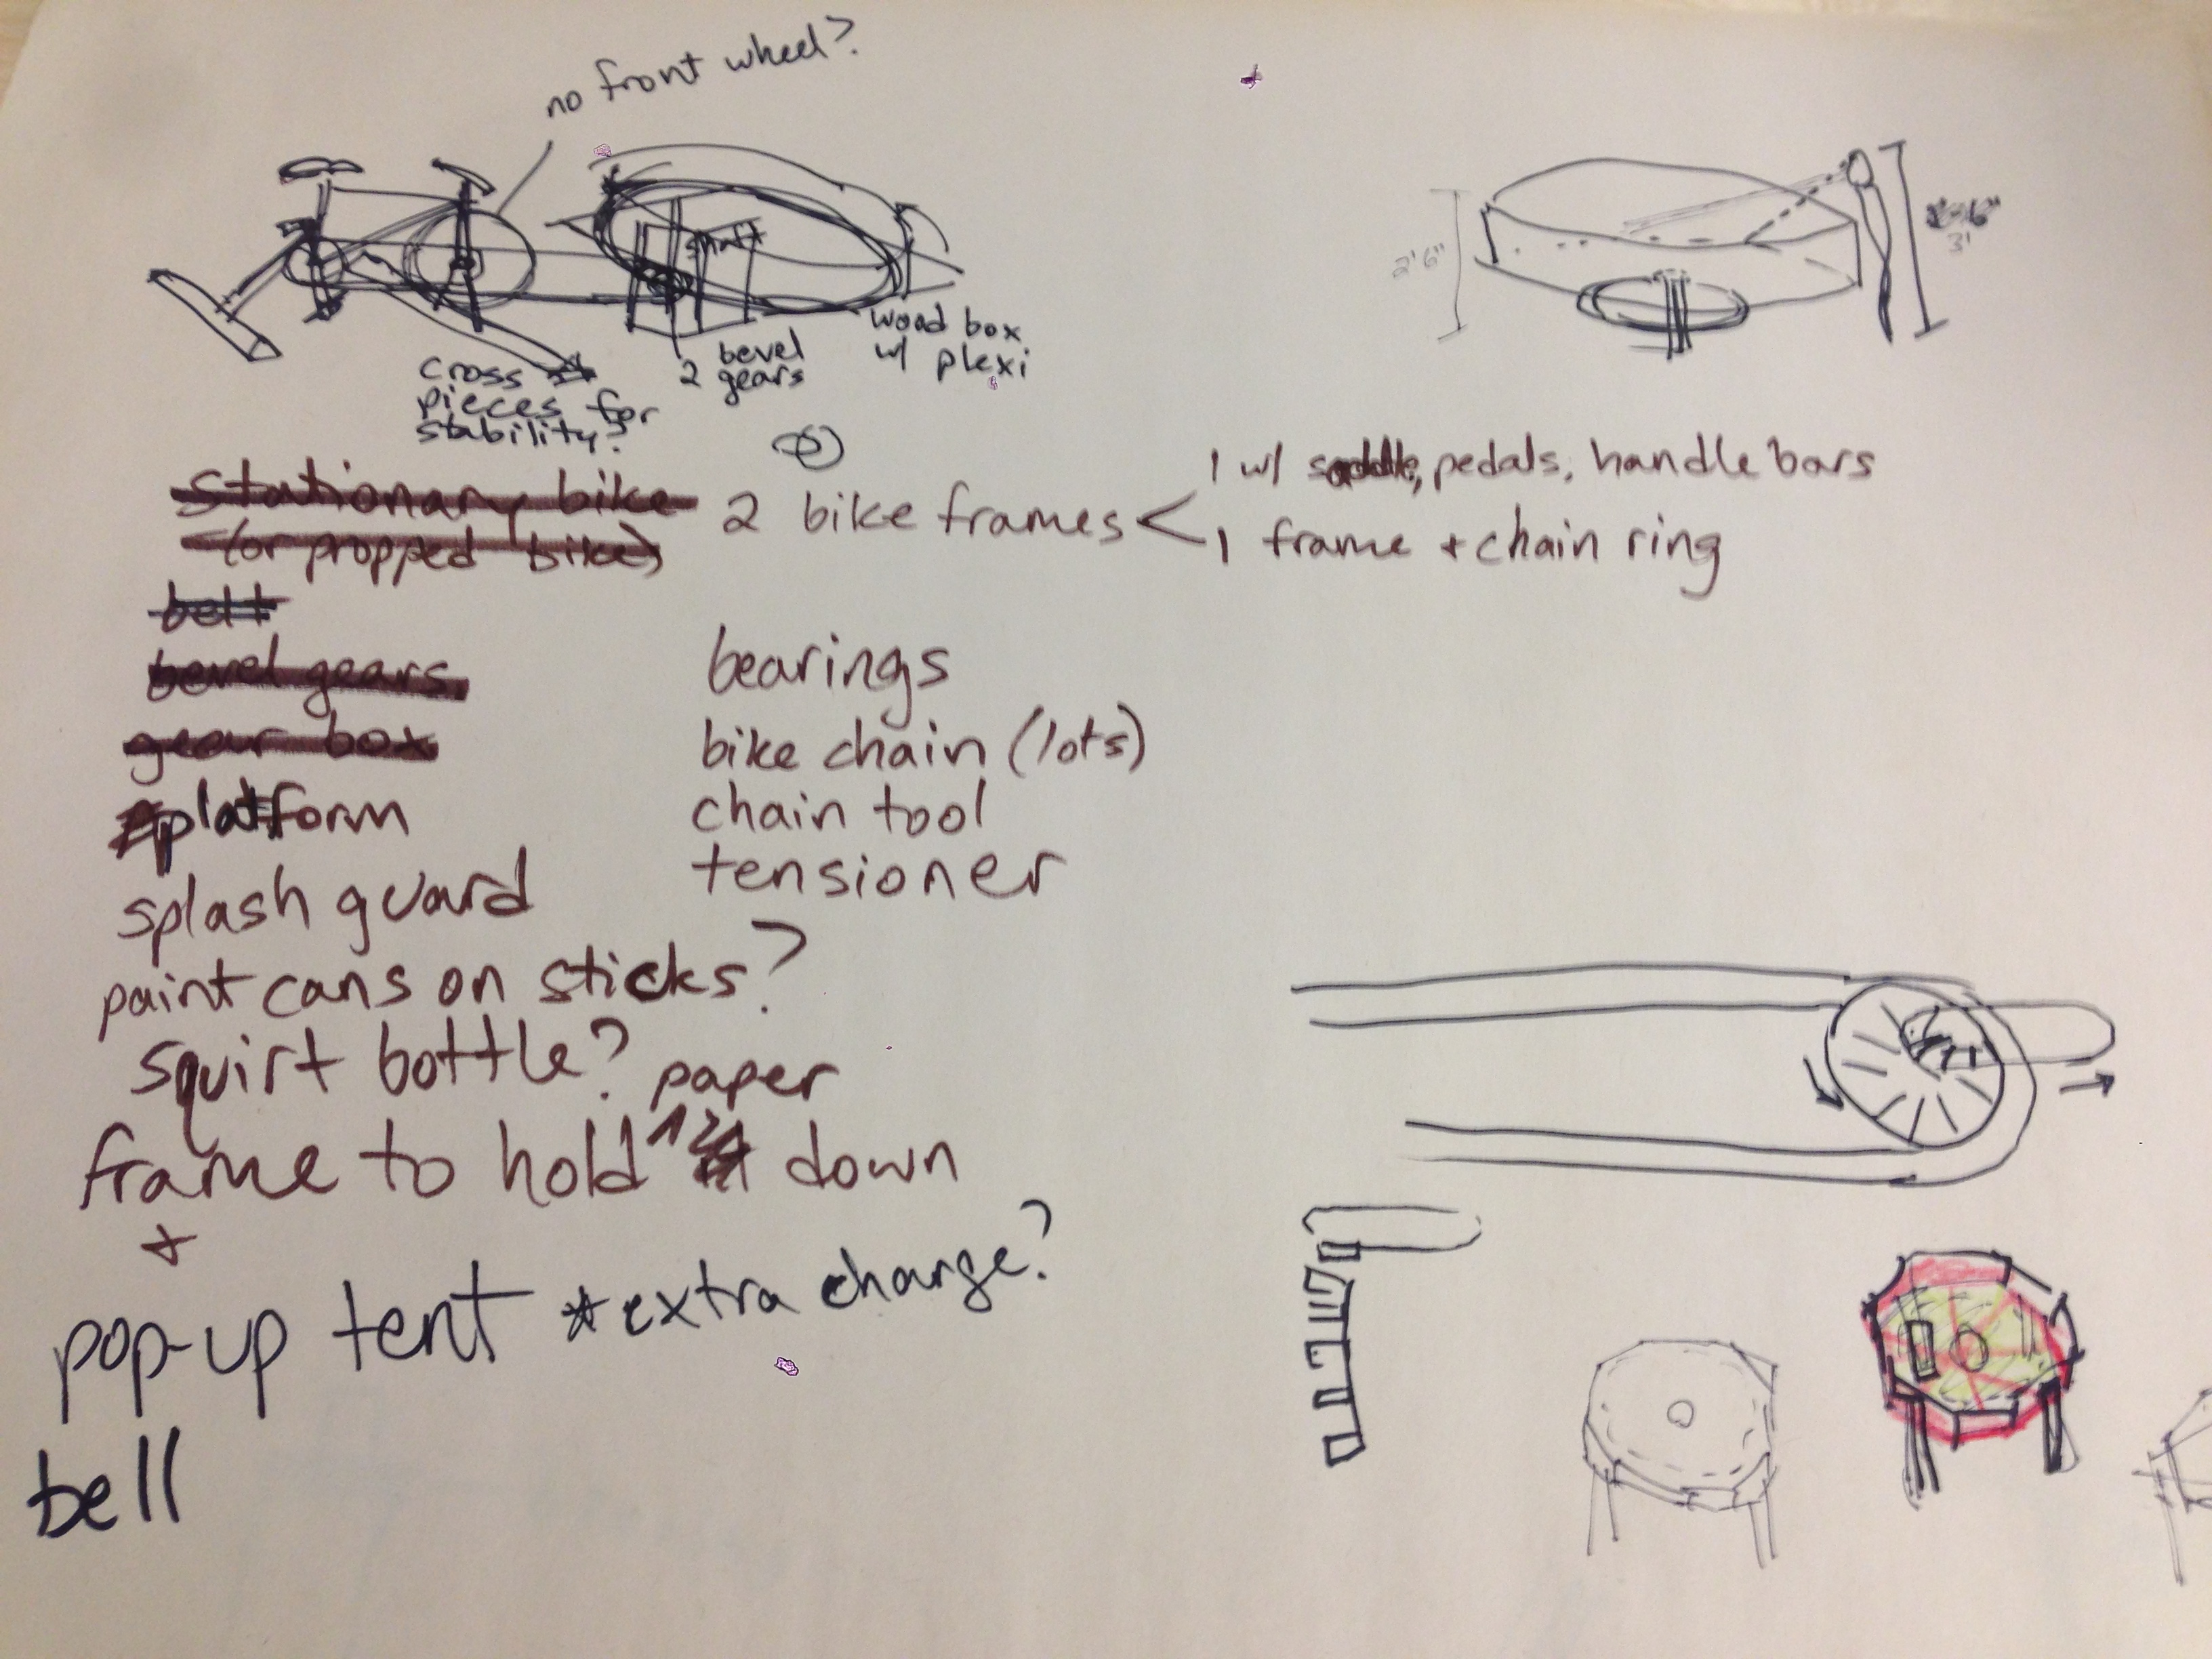 no front wheel?
shaft
wood box
w/ plexi
2 bevel
gears
cross
pieces for
stability?
2'6"
3'
stationary bike
(or propped bike)
2 bike frames <
1 w/ saddle, pedals, handle bars
1 frame + chain ring
belt
bevel gears
gear box
platform
splash guard
bearings
bike chain (lots)
chain tool
tensioner
paint cans on sticks?
squirt bottle?
paper
frame to hold ^ down
+
pop-up tent *extra charge?
bell